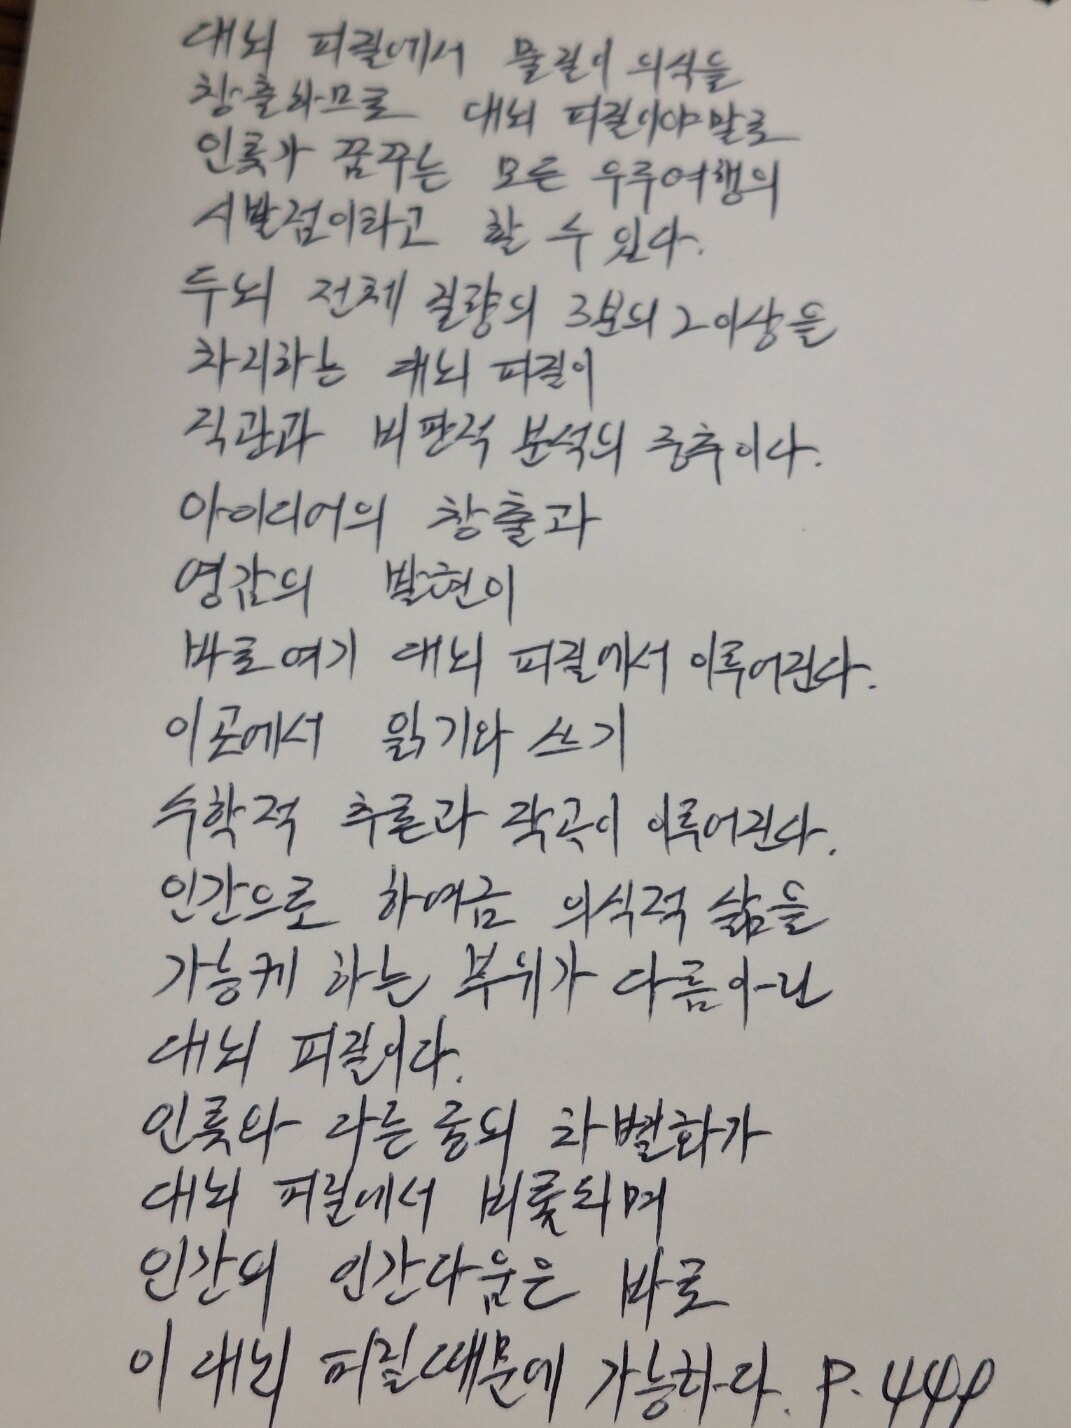 대뇌 피질에서 물질이 의식을
창출하므로 대뇌 피질이야말로
인류가 꿈꾸는 모든 우주여행의
시발점이라고 할 수 있다.
두뇌 전체 질량의 3분의 2이상을
차지하는 대뇌 피질이
직관과 비판적 분석의 중추이다.
아이디어의 창출과
영감의 발현이
바로 여기 대뇌 피질에서 이루어진다.
이곳에서 읽기와 쓰기
수학적 추론과 작곡이 이루어진다.
인간으로 하여금 의식적 삶을
가능케 하는 부위가 다름아닌
대뇌 피질이다.
인류와 다른 종의 차별화가
대뇌 피질에서 비롯되며
인간의 인간다움은 바로
이 대뇌 피질때문에 가능하다. P. 449